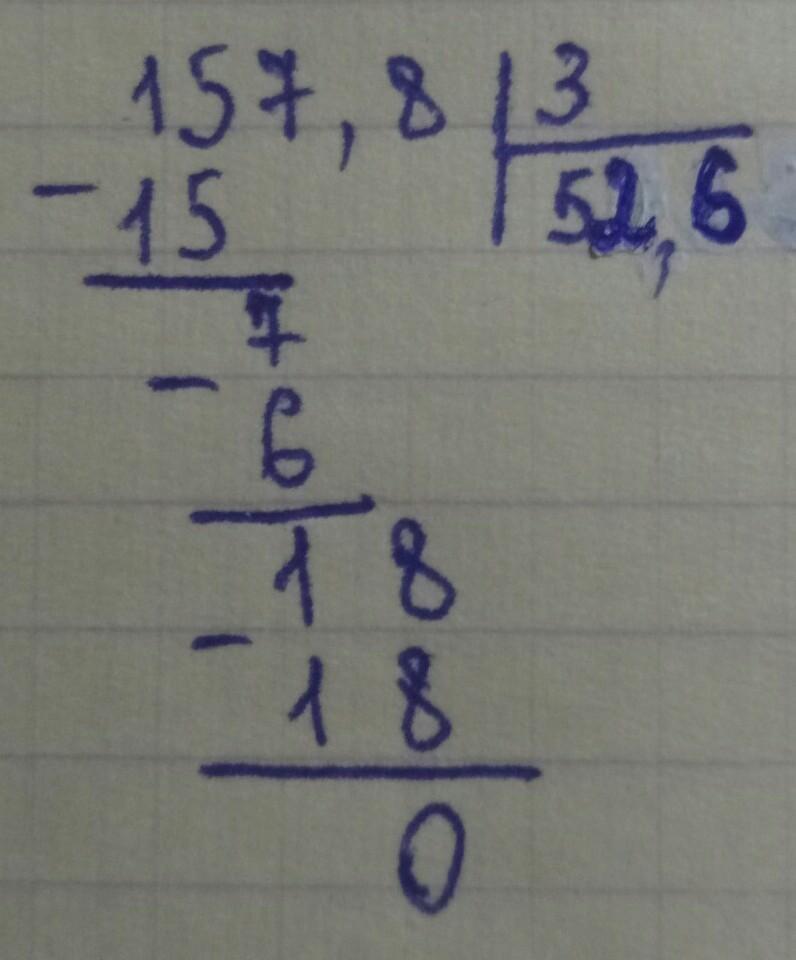 157,8 3
- 15 52,6
7
- 6
18
- 18
0